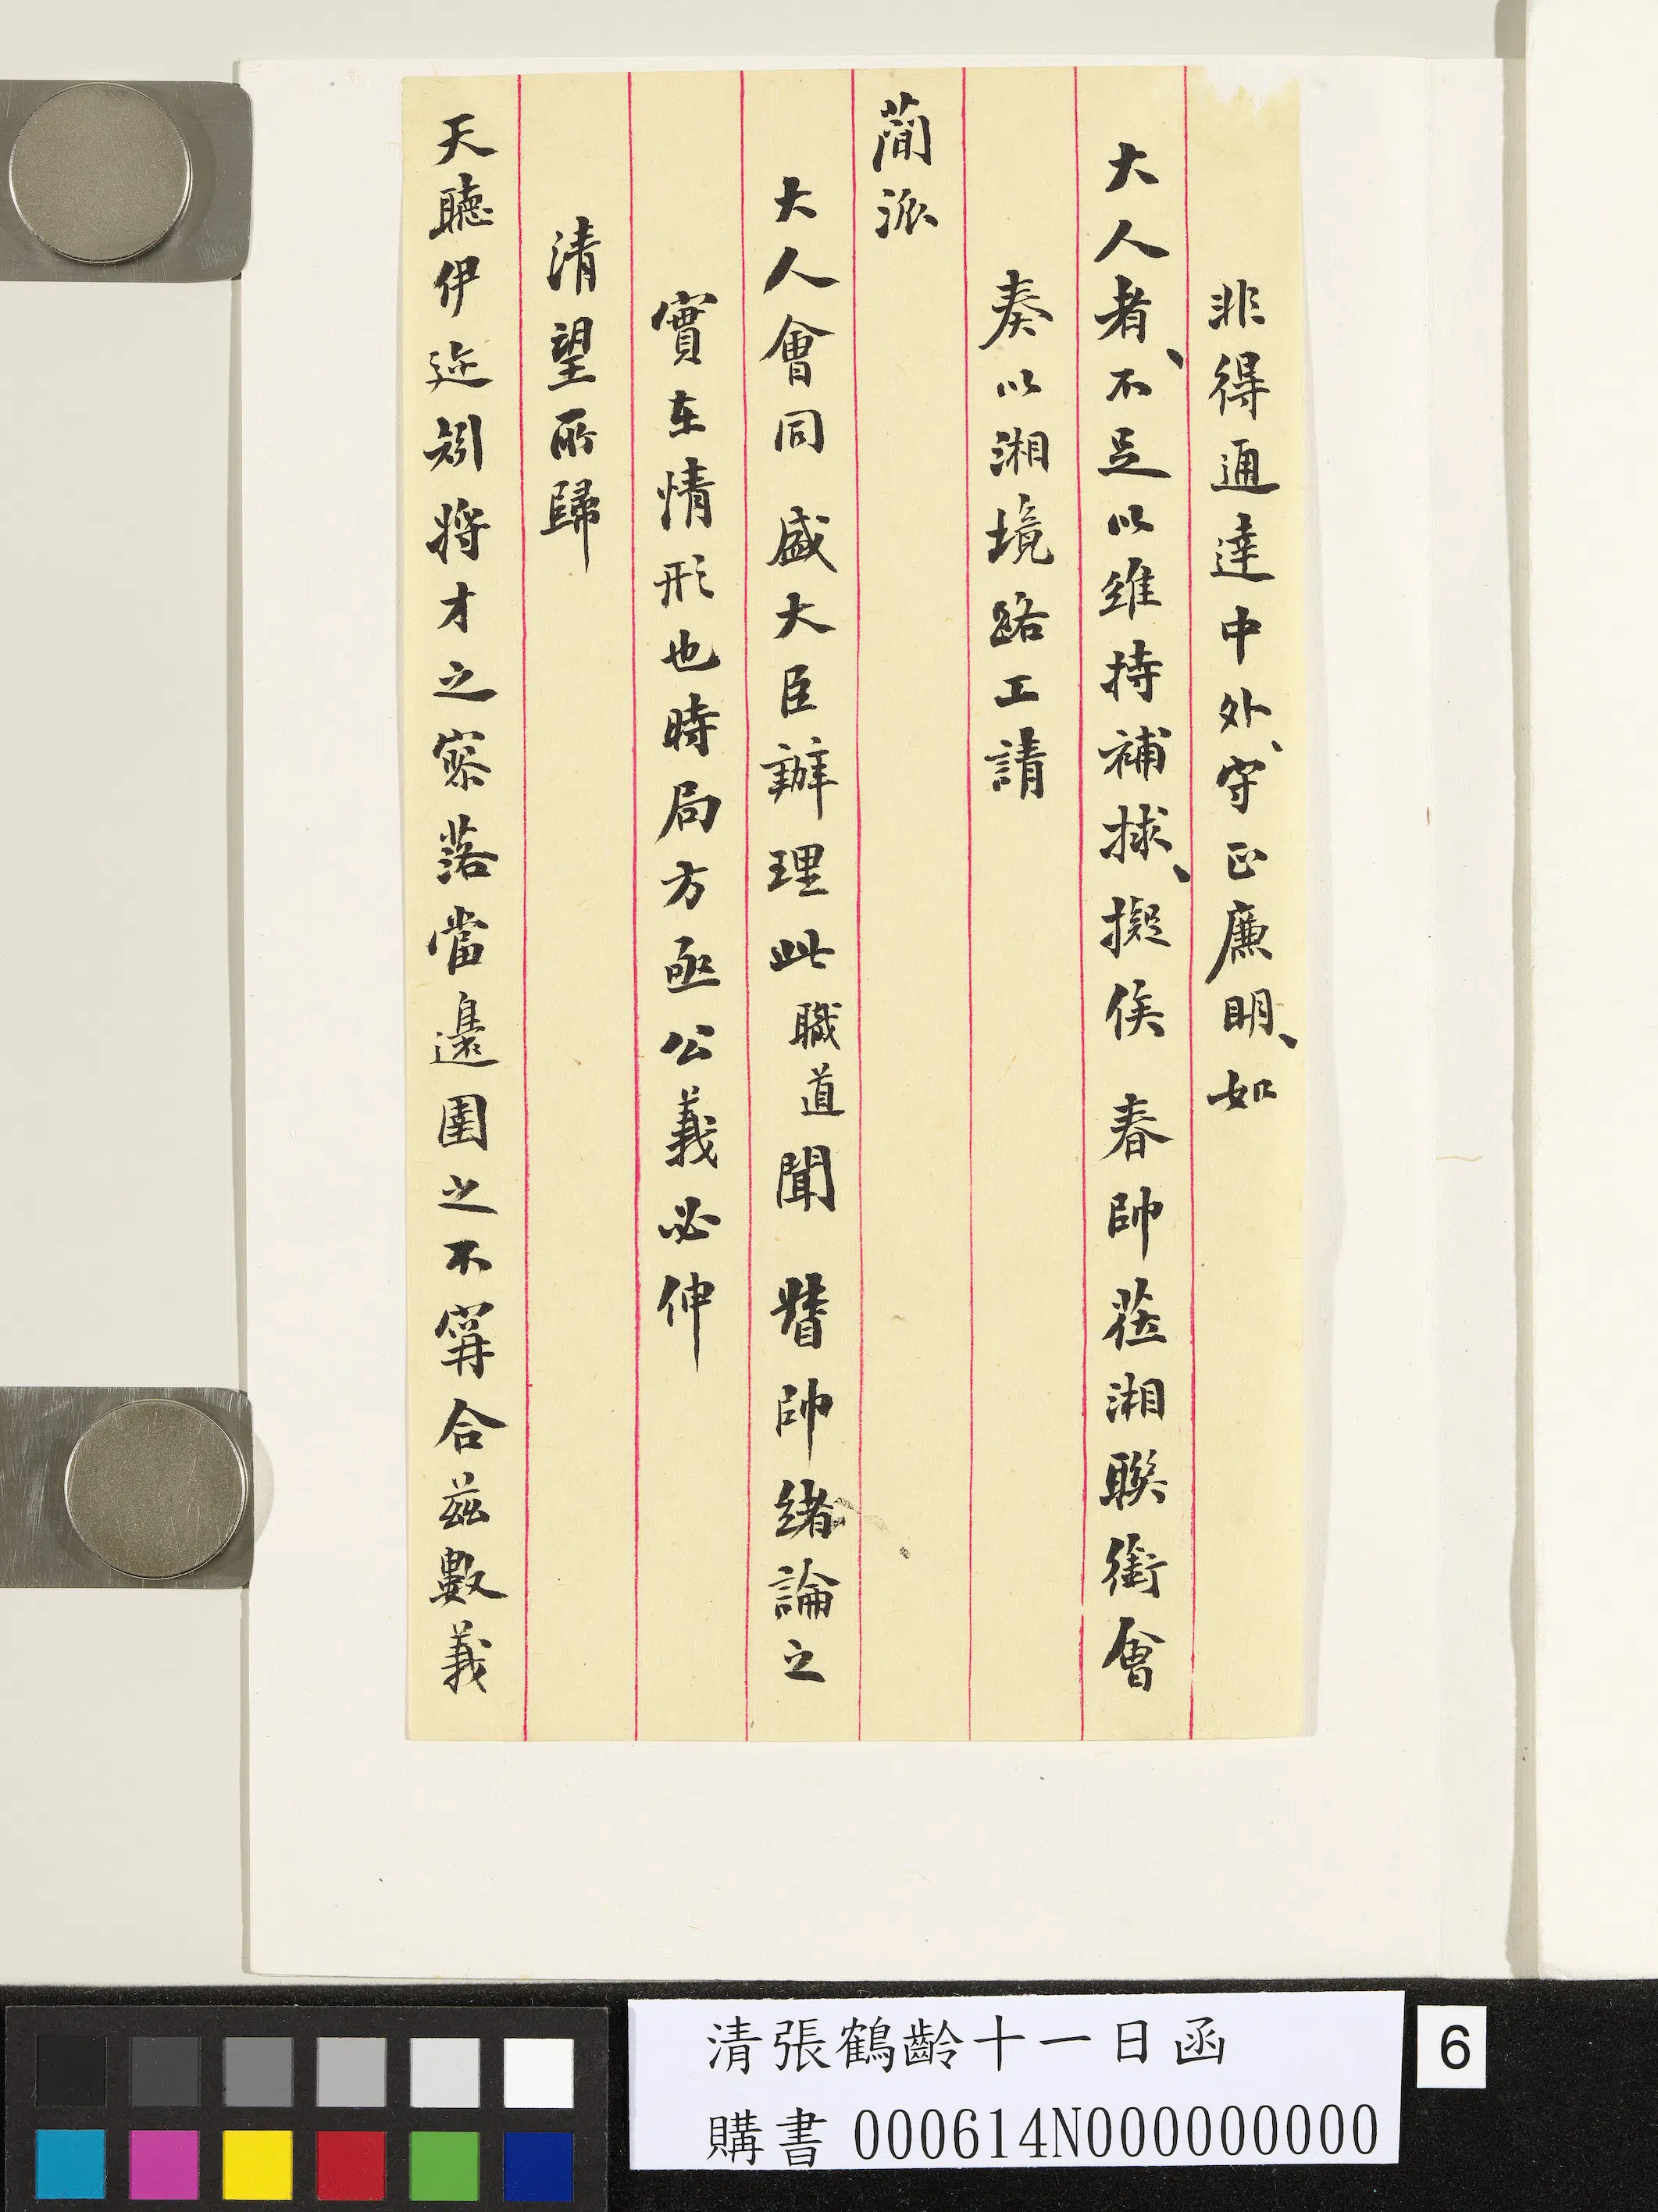 非得通達中外、守正廉明、如
大人者、不足以維持補捄、擬俟 春帥蒞湘聯銜會
奏以湘境路工請
簡派
大人會同 盛大臣辦理此職道聞 督帥緒論之
實在情形也時局方亟公義必伸
清望所歸
天聽伊邇矧將才之寥落當邊圉之不寗合茲數義
清張鶴齡十一日函
購書 000614N000000000
6